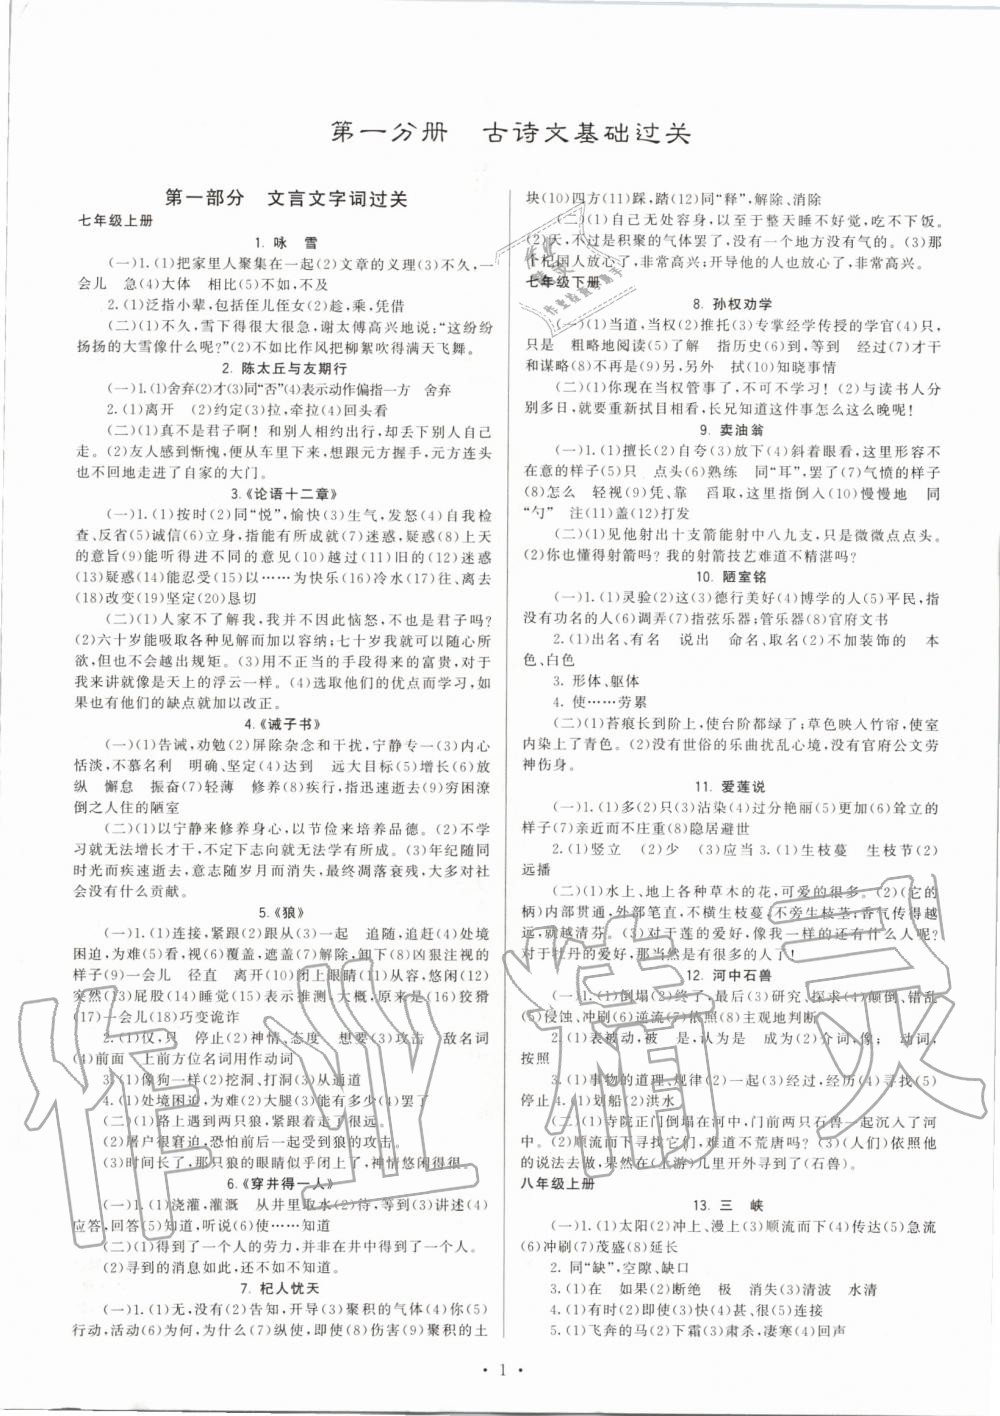 第一分册　古诗文基础过关
第一部分　文言文字词过关
七年级上册
1. 咏　雪
(一)1.(1)把家里人聚集在一起(2)文章的义理(3)不久,一
会儿　急(4)大体　相比(5)不如,不及
2.(1)泛指小辈,包括侄儿侄女(2)趁,乘,凭借
(二)(1)不久,雪下得很大很急,谢太傅高兴地说:“这纷纷
扬扬的大雪像什么呢?”(2)不如比作风把柳絮吹得满天飞舞。
2. 陈太丘与友期行
(一)1.(1)舍弃(2)才(3)同“否”(4)表示动作偏指一方　舍弃
2.(1)离开　(2)约定(3)拉,牵拉(4)回头看
(二)(1)真不是君子啊!和别人相约出行,却丢下我自己
走了。(2)友人感到惭愧,便从车里下来,想跟元方握手,元方连头
也不回地走进了自家的大门。
3.《论语十二章》
(一)1.(1)按时(2)同“悦”,愉快(3)生气,发怒(4)自我检
查、反省(5)诚信(6)立身,指能有所成就(7)迷惑,疑惑(8)上天
的意旨(9)能听得进不同的意见(10)越过(11)旧的(12)迷惑
(13)疑惑(14)能忍受(15)以……为快乐(16)冷水(17)往、离去
(18)改变(19)坚定(20)恳切
(二)(1)人家不了解我,我并不因此恼怒,不也是君子吗?
(2)六十岁能吸取各种见解而加以容纳;七十岁我就可以随心所
欲,但也不会越出规矩。(3)用不正当的手段得来的富贵,对于
我来讲就像是天上的浮云一样。(4)选取他们的优点而学习,如
果也有他们的缺点就加以改正。
4.《诫子书》
(一)(1)告诫,劝勉(2)屏除杂念和干扰,宁静专一(3)内心
恬淡,不慕名利　明确、坚定(4)达到　远大目标(5)增长(6)放
纵　懈怠　振奋(7)轻薄　修养(8)疾行,指迅速逝去(9)穷困潦
倒之人住的陋室
(二)(1)以宁静来修养身心,以节俭来培养品德。(2)不学
习就无法增长才干,不定下志向就无法学有所成。(3)年纪随同
时光而疾速逝去,意志随岁月而消失,最终凋落衰残,大多对社
会没有什么贡献。
5.《狼》
(一)1.(1)连接,紧跟(2)跟从(3)一起　追随,追赶(4)处境
困迫,为难(5)看,视(6)覆盖,遮盖(7)解除,卸下(8)凶狠注视的
样子(9)一会儿　径直　离开(10)闭上眼睛(11)从容,悠闲(12)
突然(13)屁股(14)睡觉(15)表示推测,大概,原来是(16)狡猾
(17)一会儿(18)巧变诡诈
2.(1)仅,只　停止(2)神情,态度　想要(3)攻击　敌名词
(4)前面　上前方位名词用作动词
3.(1)像狗一样(2)挖洞、打洞(3)从通道
4.(1)处境困迫,为难(2)大腿(3)能有多少(4)罢了
(二)(1)路上遇到两只狼,紧跟着走了很远。
(2)屠户很窘迫,恐怕前后受到狼的攻击。
(3)时间长了,那只狼的眼睛似乎闭上了,神情悠闲得很。
6.《穿井得一人》
(一)(1)浇灌,灌溉　从井里取水(2)等到,待到(3)讲述(4)
应答,回答(5)知道,听说(6)使……知道
(二)(1)得到了一个人的劳力,并非在井中得到了一个人。
(2)寻到的消息如此,还不如不知道。
7. 杞人忧天
(一)(1)无,没有(2)告知,开导(3)聚积的气体(4)你(5)
行动,活动(6)为何,为什么(7)纵使,即使(8)伤害(9)聚积的土
块(10)四方(11)踩、踏(12)同“释”,解除、消除
(二)(1)自己无处容身,以至于整天睡不好觉,吃不下饭。
(2)天,不过是积聚的气体罢了,没有一个地方没有气。(3)那
个杞国人放心了,非常高兴;开导他的人也放心了,非常高兴。
七年级下册
8. 孙权劝学
(一)(1)当道,当权(2)推托(3)专掌经学传授的学官(4)只,
只是　粗略地阅读(5)了解　指历史(6)到,等到　经过(7)才干
和谋略(8)不再是(9)另,另外　拭(10)知晓事情
(二)(1)你现在当权管事了,不可不学习!(2)与读书人分
别多日,就要重新拭目相看,长兄知道这件事怎么这么晚呢!
9. 卖油翁
(一)(1)擅长(2)自夸(3)放下(4)斜着眼看,这里形容不
在意的样子(5)只　点头(6)熟练　同“耳”,罢了(7)气愤的样子
(8)怎么　轻视(9)凭、靠　舀取,这里指倒入(10)慢慢地　同
“勺”　注(11)盖(12)打发
(二)(1)见他射出十支箭能射中八九支,只是微微点点头。
(2)你也懂得射箭吗?我的射箭技艺难道不精湛吗?
10. 陋室铭
(一)1.(1)灵验(2)这(3)德行美好(4)博学的人(5)平民,指
没有功名的人(6)调弄(7)指弦乐器;管乐器(8)官府文书
2.(1)出名、有名　说出　命名、取名(2)不加装饰的　本
色、白色
3. 形体、躯体
4. 使……劳累
(二)(1)苔痕长到阶上,使台阶都绿了;草色映入竹帘,使室
内染上了青色。(2)没有世俗的乐曲扰乱心境,没有官府公文劳
神伤身。
11. 爱莲说
(一)1.(1)多(2)只(3)沾染(4)过分艳丽(5)更加(6)耸立的
样子(7)亲近而不庄重(8)隐居避世
2.(1)竖立　(2)少　(3)应当 3.(1)生枝蔓　生枝节(2)
远播
(二)(1)水上、地上各种草木的花,可爱的很多。(2)(它的
柄)内部贯通,外部笔直,不横生枝蔓,不旁生枝茎;香气传得越
远,就越清芬。(3)对于莲的爱好,像我一样的还有什么人呢?
对于牡丹的爱好,人该是很多了!
12. 河中石兽
(一)1.(1)倒塌(2)终了,最后(3)研究、探求(4)颠倒、错乱
(5)侵蚀、冲刷(6)逆流(7)依照(8)主观地判断
2.(1)表被动,被　是,认为是　成为(2)介词,像;　动词,
按照
3.(1)事物的道理、规律(2)一起(3)经过,经历(4)寻找(5)
停止 4.(1)划船(2)洪水
(二)(1)寺院正门倒塌在河中,门前两只石兽一起沉入了河
中。(2)顺流而下寻找它们,难道不荒唐吗?(3)(人们)依照他
的说法去做,果然在(上游)几里开外寻到了(石兽)。
八年级上册
13. 三　峡
(一)1.(1)太阳(2)冲上、漫上(3)顺流而下(4)传达(5)急流
(6)冲刷(7)茂盛(8)延长
2. 同“缺”,空隙、缺口
3.(1)在　如果(2)断绝　极　消失(3)清波　水清
4.(1)有时(2)即使(3)快(4)甚、很(5)连接
5.(1)飞奔的马(2)下霜(3)肃杀,凄寒(4)回声
• 1 •
作业精灵